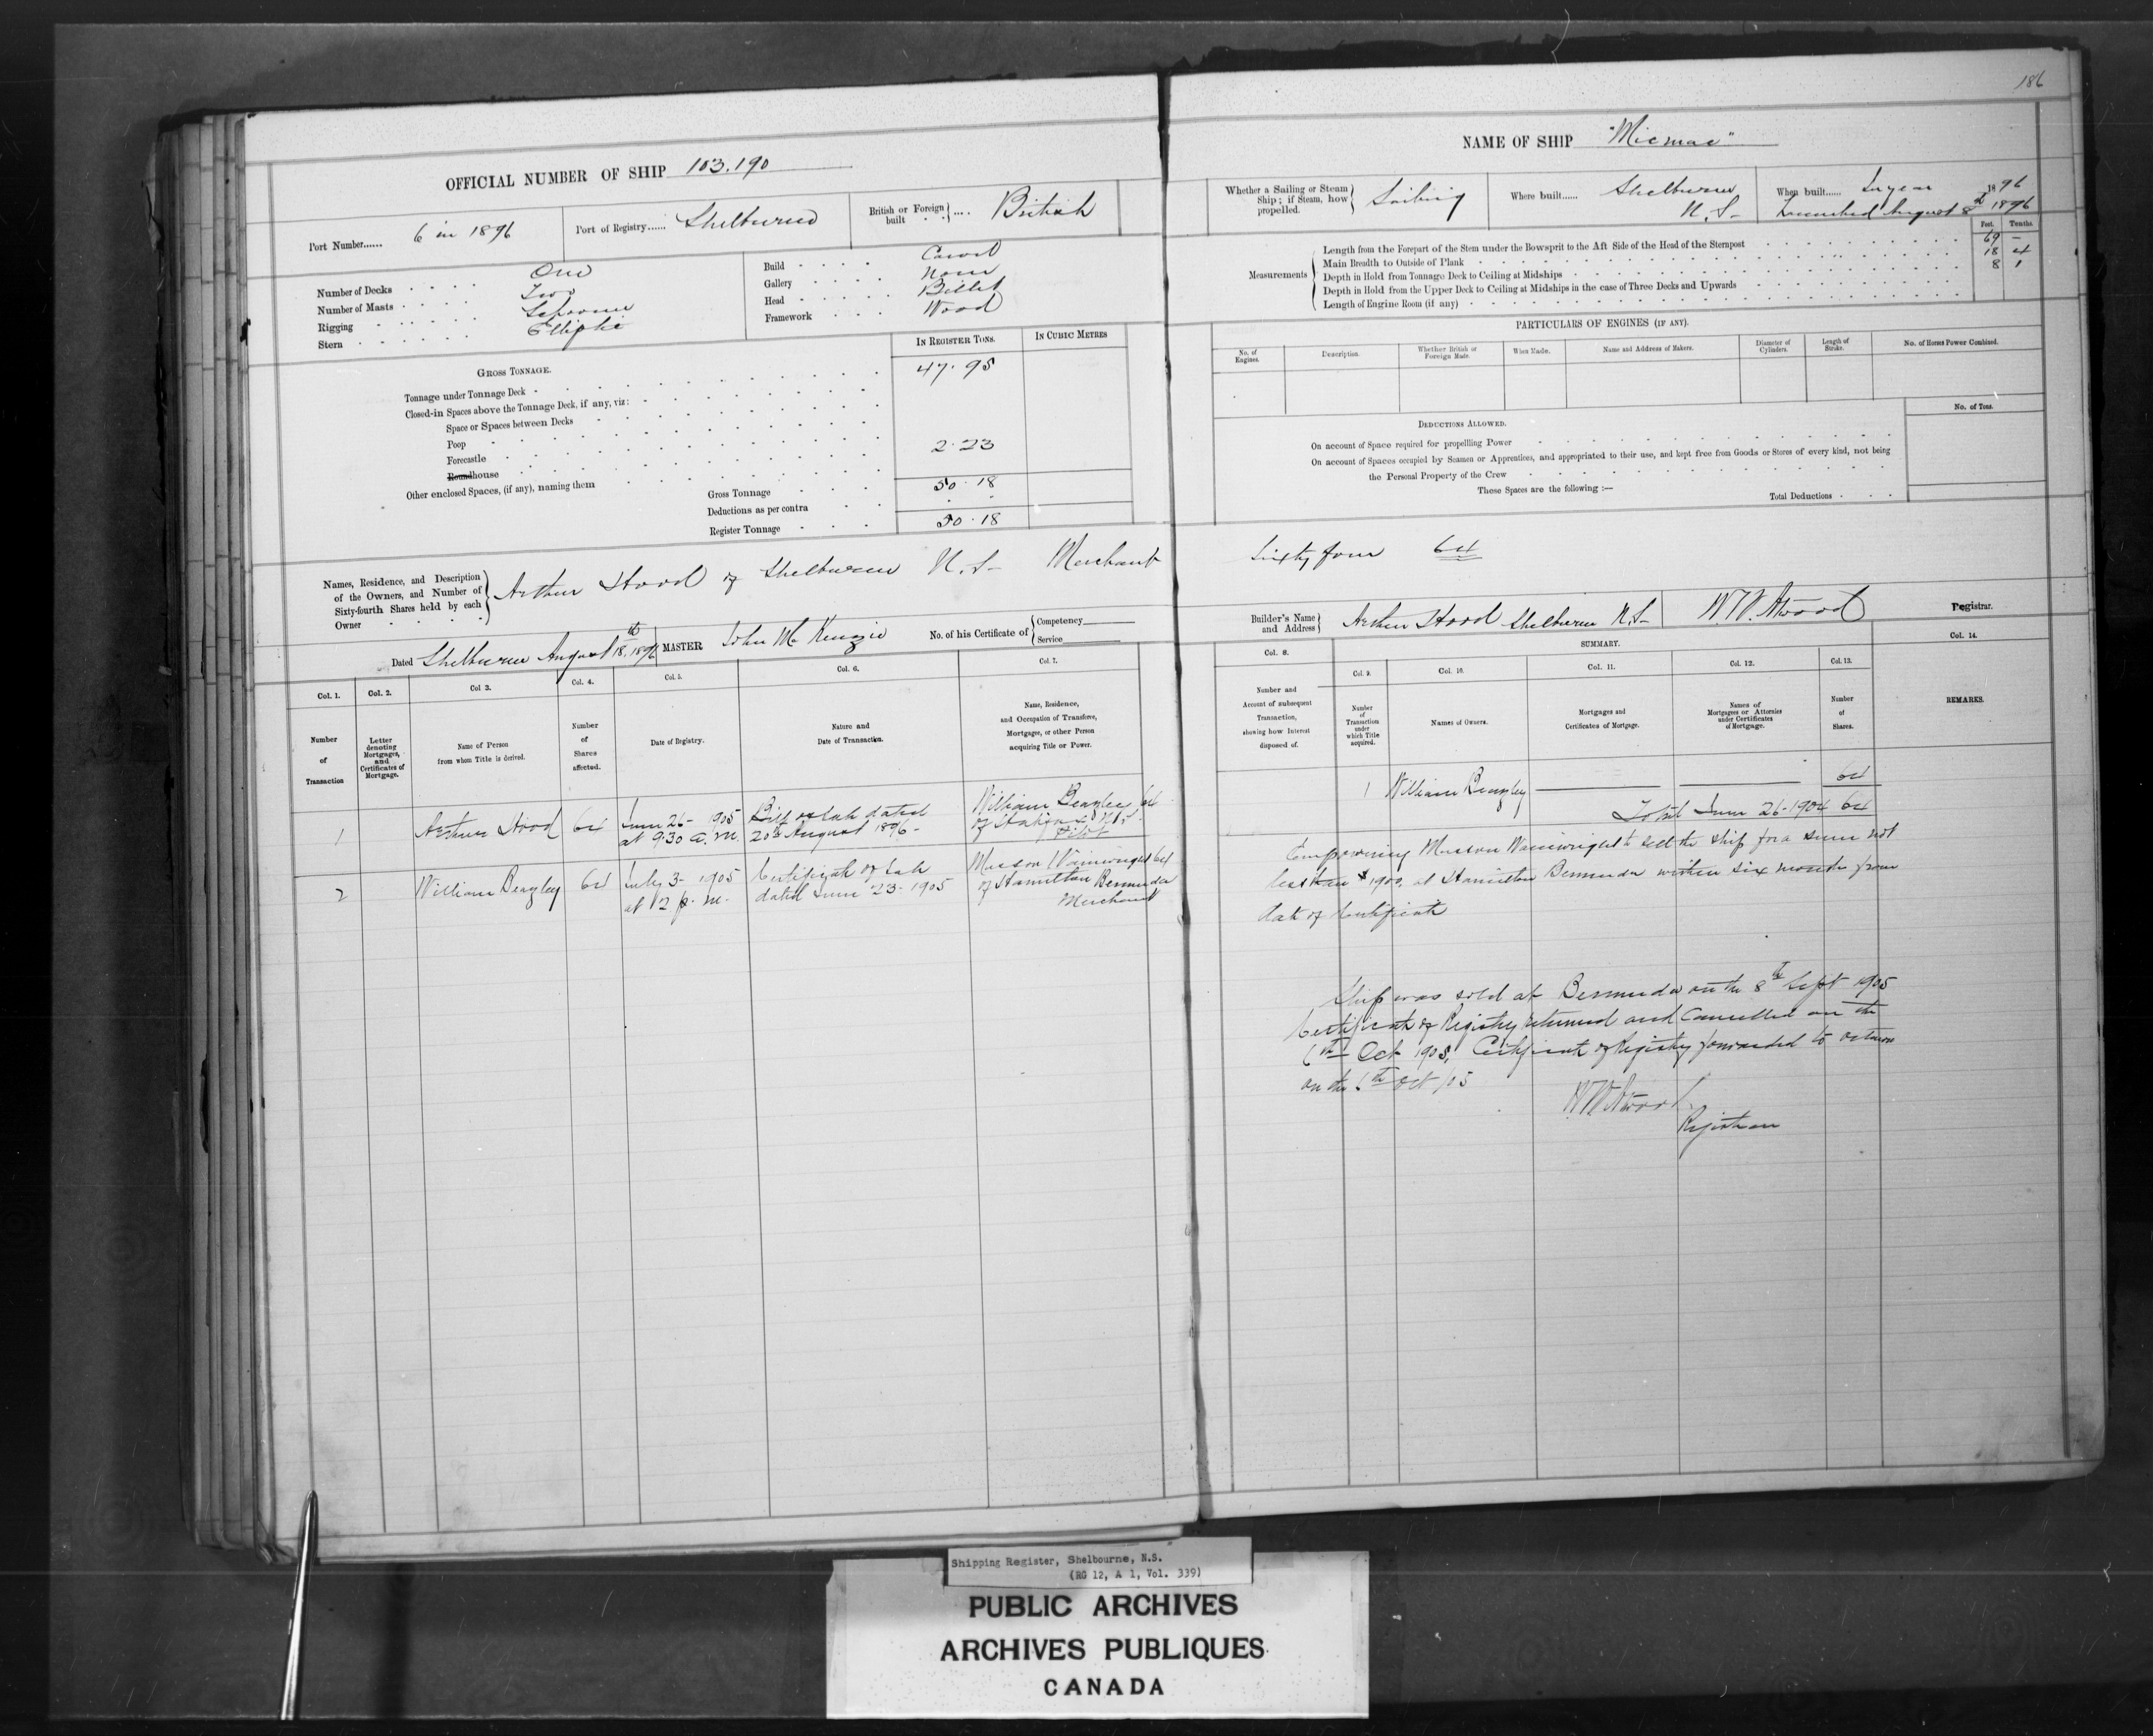 186
OFFICIAL NUMBER OF SHIP 103.190
Port Number...... 6 in 1896
Port of Registry...... Shelburne
British or Foreign built .... British
Number of Decks One
Number of Masts Two
Rigging Schooner
Stern Elliptic
Build Carvel
Gallery None
Head Billet
Framework Wood
IN REGISTER TONS.
IN CUBIC METRES
GROSS TONNAGE.
Tonnage under Tonnage Deck 47.95
Closed-in Spaces above the Tonnage Deck, if any, viz:
Space or Spaces between Decks
Poop
Forecastle
Roundhouse 2.23
Other enclosed Spaces, (if any), naming them
Gross Tonnage 50.18
Deductions as per contra
Register Tonnage 50.18
NAME OF SHIP "Micmac"
Whether a Sailing or Steam Ship; if Steam, how propelled. Sailing
Where built...... Shelburne N.S-
When built...... In year 1896
Launched August 8th 1896
Feet. Tenths.
Measurements
Length from the Forepart of the Stem under the Bowsprit to the Aft Side of the Head of the Sternpost 69 -
Main Breadth to Outside of Plank 18 4
Depth in Hold from Tonnage Deck to Ceiling at Midships 8 1
Depth in Hold from the Upper Deck to Ceiling at Midships in the case of Three Decks and Upwards
Length of Engine Room (if any)
PARTICULARS OF ENGINES (IF ANY).
No. of Engines.
Description.
Whether British or Foreign Made.
When Made.
Name and Address of Makers.
Diameter of Cylinders.
Length of Stroke.
No. of Horses Power Combined.
DEDUCTIONS ALLOWED.
No. of Tons.
On account of Space required for propelling Power
On account of Spaces occupied by Seamen or Apprentices, and appropriated to their use, and kept free from Goods or Stores of every kind, not being
the Personal Property of the Crew
These Spaces are the following :—
Total Deductions
Names, Residence, and Description of the Owners, and Number of Sixty-fourth Shares held by each Owner
Arthur Hood of Shelburne N.S- Merchant Sixty four 64
Dated Shelburne August 18th, 1896
MASTER John McKenzie
No. of his Certificate of Competency
Service
Builder's Name and Address Arthur Hood Shelburne N.S-
W.W. Atwood Registrar.
Col. 1.
Col. 2.
Col 3.
Col. 4.
Col. 5.
Col. 6.
Col. 7.
Number of Transaction
Letter denoting Mortgages, and Certificates of Mortgage.
Name of Person from whom Title is derived.
Number of Shares affected.
Date of Registry.
Nature and Date of Transaction.
Name, Residence, and Occupation of Transferee, Mortgagee, or other Person acquiring Title or Power.
Col. 8.
SUMMARY.
Col. 9.
Col. 10.
Col. 11.
Col. 12.
Col. 13.
Col. 14.
Number and Amount of subsequent Transaction, showing how Interest disposed of.
Number of Transaction under which Title acquired.
Names of Owners.
Mortgages and Certificates of Mortgage.
Names of Mortgagees or Attornies under Certificates of Mortgage.
Number of Shares.
REMARKS.
1 Arthur Hood 64
June 26- 1905
at 9.30 a.m.
Bill of Sale dated
20th August 1896-
William Beazley 64
of Halifax N.S.
Pilot
1 William Beazley 64
Total June 26-1904 64
2 William Beazley 64
July 3- 1905
at 12 p.m.
Certificate of Sale
dated June 23-1905
Musson Wainwright 64
of Hamilton Bermuda
Merchant
Empowering Musson Wainwright to sell the ship for a sum not
less than $1900, at Hamilton Bermuda within six months from
date of Certificate
Ship was sold at Bermuda on the 8th Sept 1905
Certificate of Registry returned and Cancelled on the
6th Oct 1905, Certificate of Registry forwarded to Ottawa
on the 6th Oct /05
W.W. Atwood
Registrar
Shipping Register, Shelbourne, N.S.
(RG 12, A 1, Vol. 339)
PUBLIC ARCHIVES
ARCHIVES PUBLIQUES
CANADA